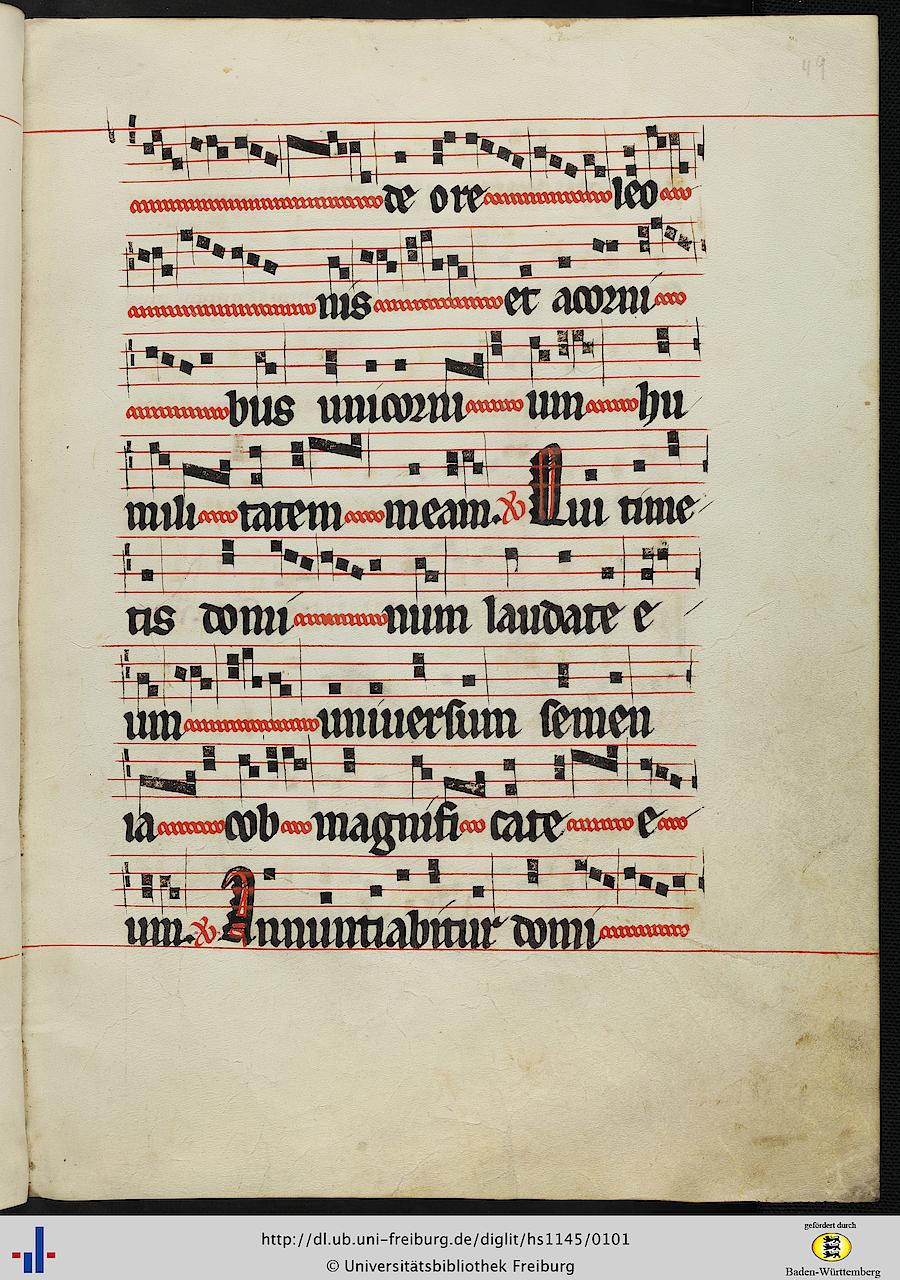 49
de ore leo
nis et acorni
bus unicorni um hu
mili tatem meam. V Qui time
tis domi num laudate e
um universum semen
ia cob magnifi cate e
um. V Annuntiabitur domi
http://dl.ub.uni-freiburg.de/diglit/hs1145/0101
© Universitätsbibliothek Freiburg
gefördert durch
Baden-Württemberg